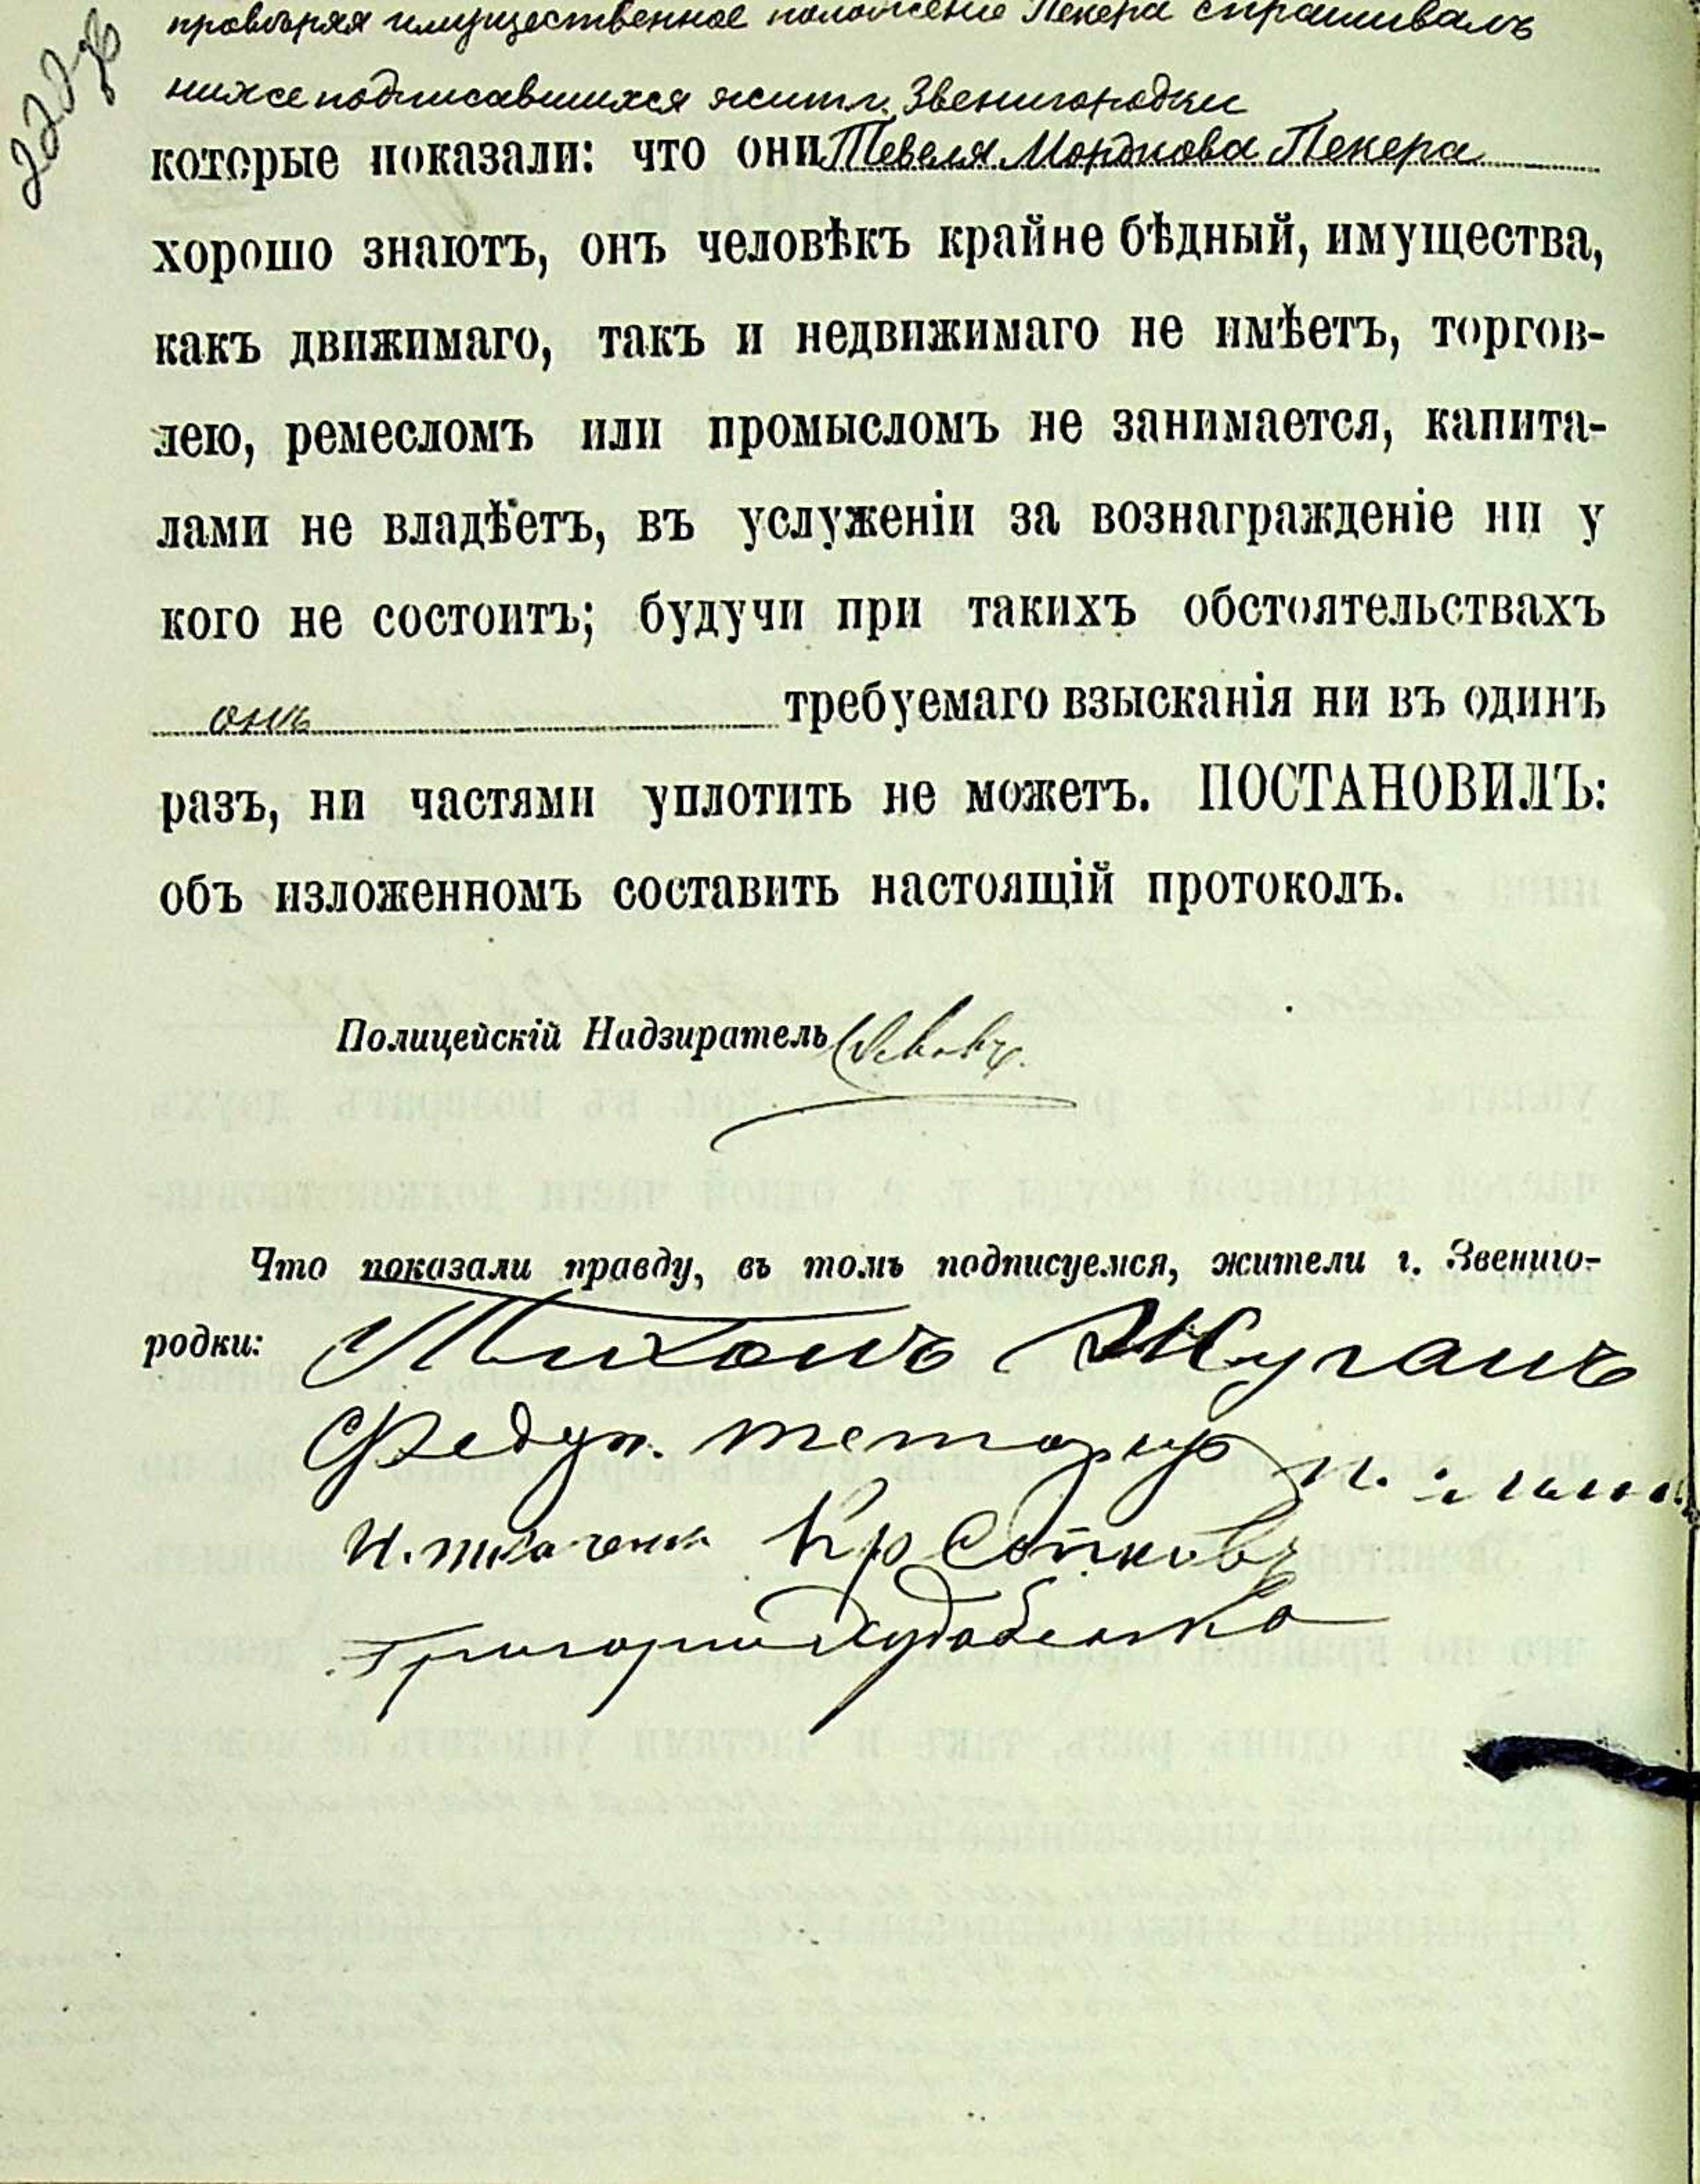 провѣряя имущественное положеніе Пекера спрашивалъ
нижеподписавшихся жит. г. Звенигородки
которые показали: что они Тевеля Мордкова Пекера
хорошо знаютъ, онъ человѣкъ крайне бѣдный, имущества,
какъ движимаго, такъ и недвижимаго не имѣетъ, торгов-
лею, ремесломъ или промысломъ не занимается, капита-
лами не владѣетъ, въ услуженіи за вознагражденіе ни у
кого не состоитъ; будучи при такихъ обстоятельствахъ
онъ требуемаго взысканія ни въ одинъ
разъ, ни частями уплотить не можетъ. ПОСТАНОВИЛЪ:
объ изложенномъ составить настоящій протоколъ.
Полицейскій Надзиратель
Что показали правду, въ томъ подписуемся, жители г. Звениго-
родки: Тихонъ Жуганъ
И. Ткаченко
Григорій Худобенко